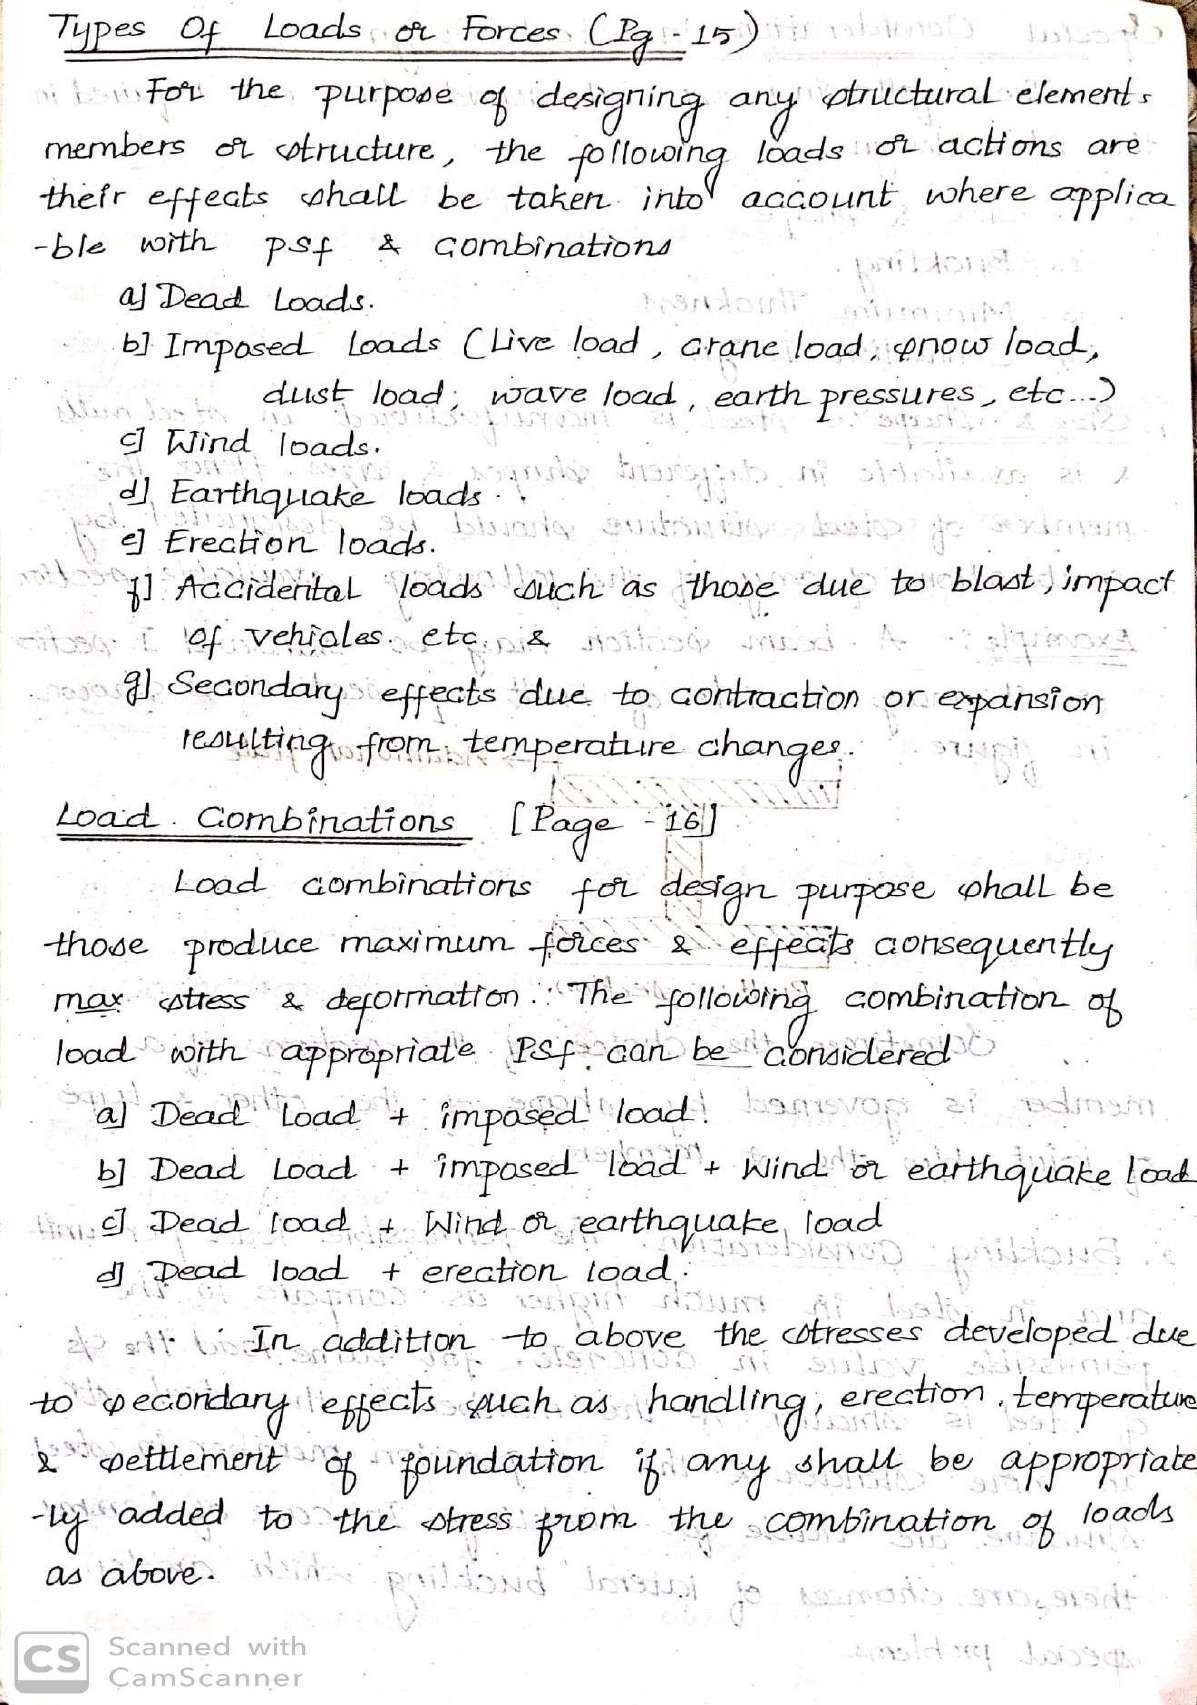 Types Of Loads or Forces (Pg - 15)
For the purpose of designing any structural elements
members or structure, the following loads or actions are
their effects shall be taken into account where applica
-ble with psf & combinations
a] Dead Loads.
b] Imposed Loads (Live load, crane load, snow load,
dust load, wave load, earth pressures, etc...)
c] Wind loads.
d] Earthquake loads.
e] Erection loads.
f] Accidental loads such as those due to blast, impact
of vehicles. etc. &
g] Secondary effects due to contraction or expansion
resulting from temperature changes.
Load Combinations [Page - 16]
Load combinations for design purpose shall be
those produce maximum forces & effects consequently
max stress & deformation. The following combination of
load with appropriate PSf can be considered
a] Dead Load + imposed load.
b] Dead Load + imposed load + Wind or earthquake load
c] Dead load + Wind or earthquake load
d] Dead load + erection load.
In addition to above the stresses developed due
to secondary effects such as handling, erection, temperature
& settlement of foundation if any shall be appropriate
-ly added to the stress from the combination of loads
as above.
CS Scanned with
CamScanner